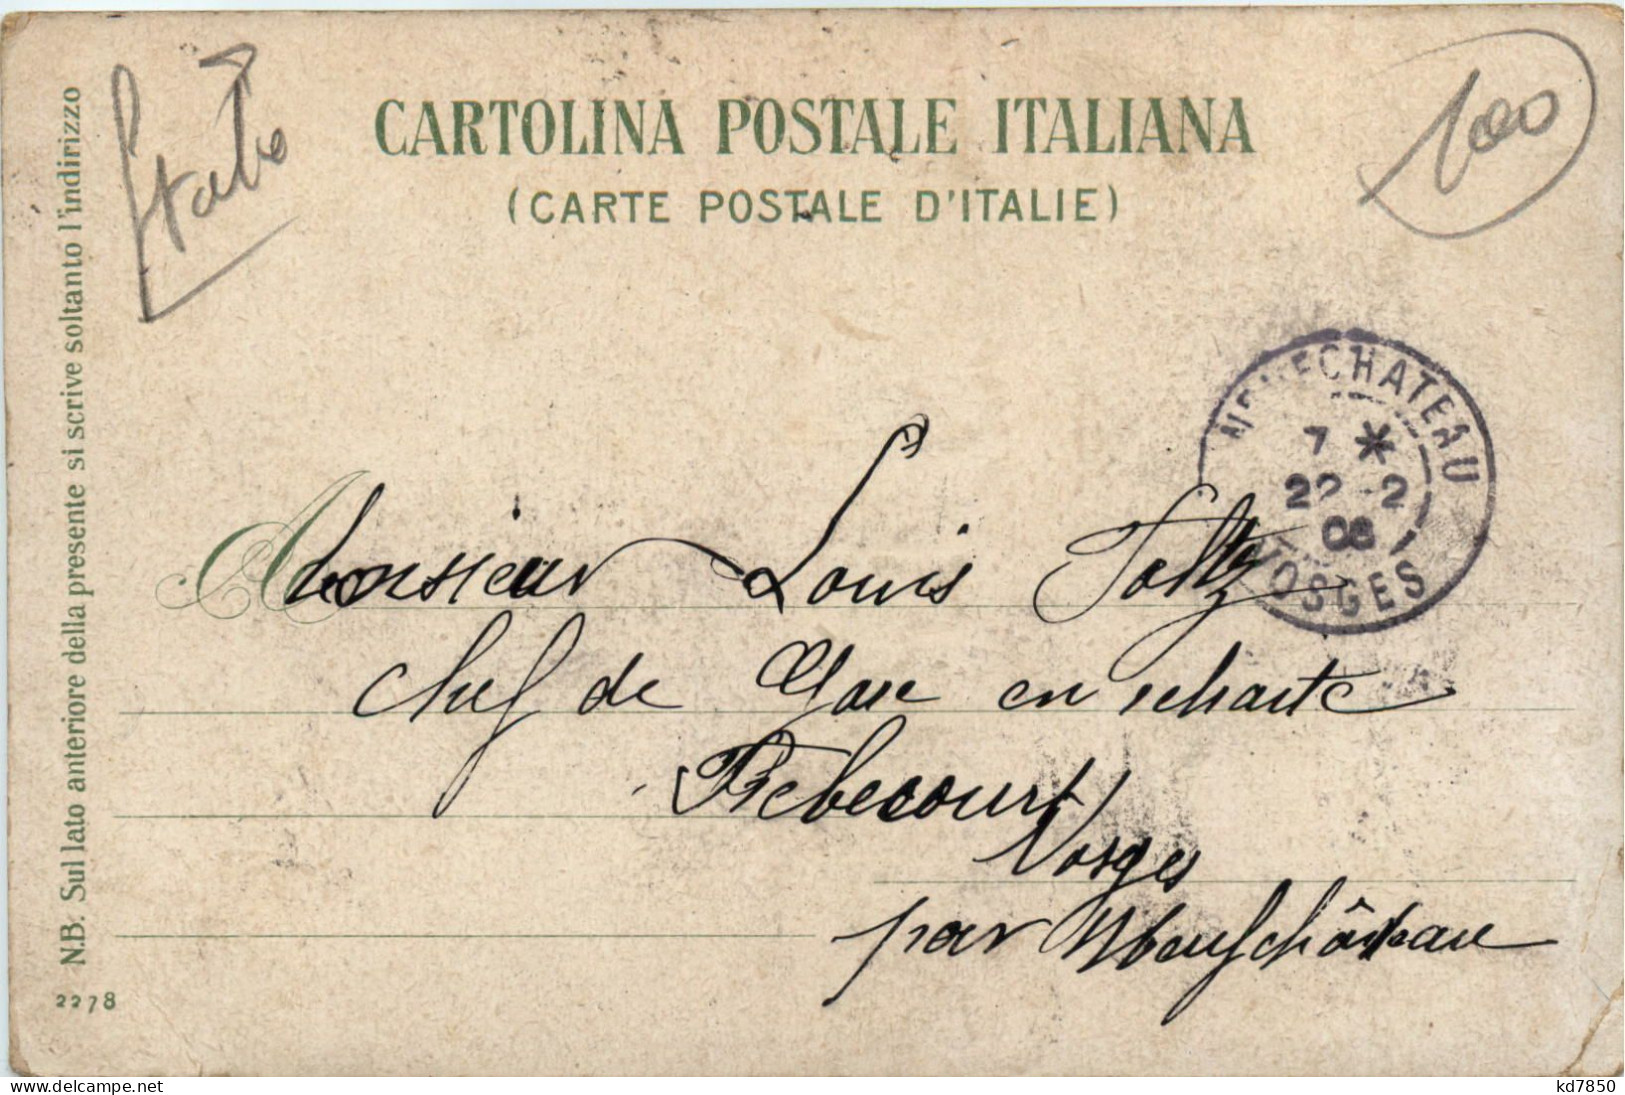 CARTOLINA POSTALE ITALIANA
(CARTE POSTALE D'ITALIE)
Italie
100
N.B. Sul lato anteriore della presente si scrive soltanto l'indirizzo
NEUFCHATEAU
7 *
22 -2
08
VOSGES
Monsieur Louis Toltz
Chef de Gare en retraite
Rebecourt
Vosges
par Neufchâteau
2278
www.delcampe.net
kd7850